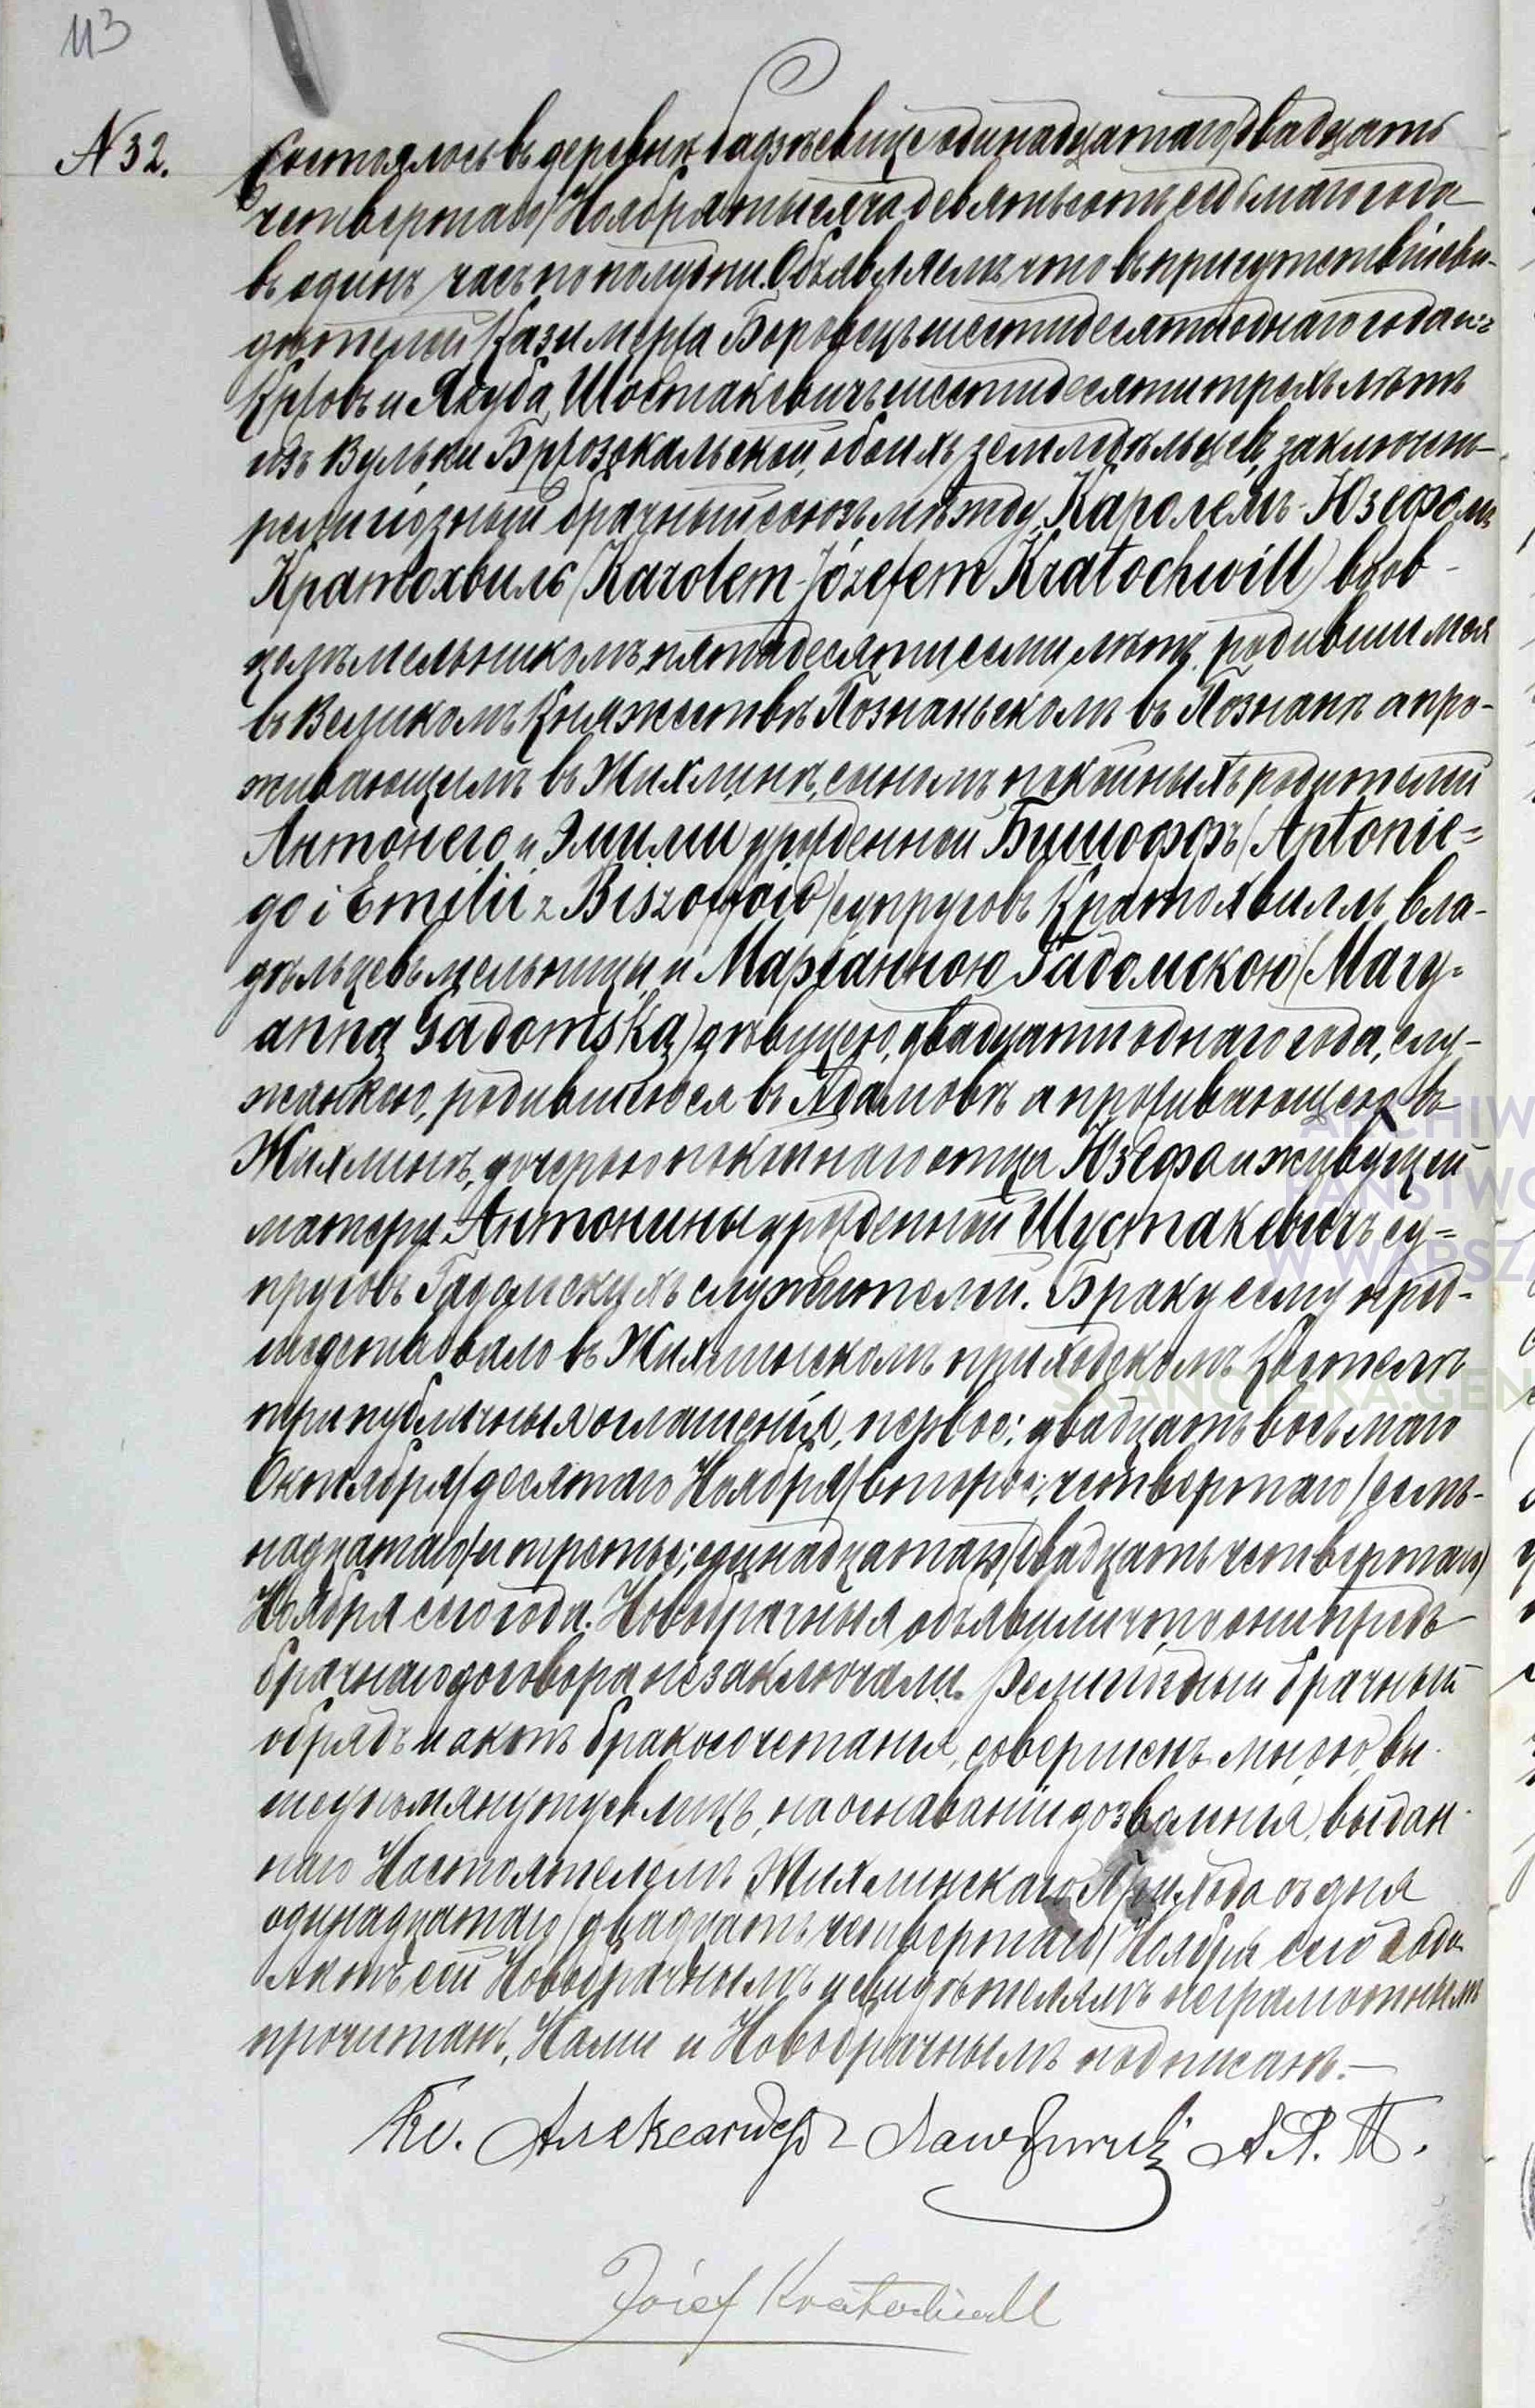 113
N 32. Состоялось въ деревнѣ Бадзѣевице одинадцатаго/двадцать
четвертаго/ Ноября тысяча девятьсотъ седьмаго года
въ одинъ часъ по полудни. Объявляемъ что въ присутствіи сви-
дѣтелей Казимержа Боровецъ шестидесяти однаго года изъ
и Якуба Шостакевичъ шестидесяти трехъ лѣтъ
изъ Вульки Бржозокальской, обоихъ земледѣльцевъ, заключенъ
религіозный брачный союзъ между Каролемъ-Юзефомъ
Кратохвиль (Karolem-Józefem Kratochwill) вдов-
цемъ мельникомъ пятидесяти семи лѣтъ, родившимся
въ Великомъ Княжествѣ Познаньскомъ въ Познанѣ а про-
живающимъ въ Жихлинѣ, сыномъ покойныхъ родителей
Антонего и Эмилии урожденной Бишоффъ (Antonie=
go i Emilii z Biszoffów) супруговъ Кратохвилль вла-
дѣльцевъ мельницы и Маріанною Гадомскою (Mary=
anną Gadomską) дѣвицею, двадцати однаго года, слу-
жанкою, родившеюся въ Адамовѣ а проживающею въ
Жихлинѣ, дочерью покойнаго отца Юзефа и живущей
матери Антонины урожденной Шустакевичъ су=
пруговъ Гадомскихъ служителей. Браку сему пред-
шествовало въ Жихлинскомъ приходскомъ Костелѣ
три публичныя оглашенія, первое: двадцать восьмаго
Октября/десятаго Ноября/ второе; четвертаго/семь-
надцатаго/ и третье; одинадцатаго/двадцать четвертаго/
Ноября сего года. Новобрачныя объявили что они предъ-
брачнаго договора незаключали. Религіозный брачный
обрядъ и актъ бракосочетанія, совершенъ мною, вы-
шеупомянутусь лицъ, на основаніи дозваленія, выдан-
наго Настоятелемъ Жихлинскаго Прихода съ дня
одинадцатаго/двадцать четвертаго/ Ноября сего года
Актъ сей Новобрачнымъ и свидѣтелямъ неграмотнымъ
прочитанъ, Нами и Новобрачнымъ подписанъ.—
Кс. Александеръ А. П. Т.
Józef Kratochwill
ARCHIW
PAŃSTWO
W WARSZA
SKANOTEKA.GEN